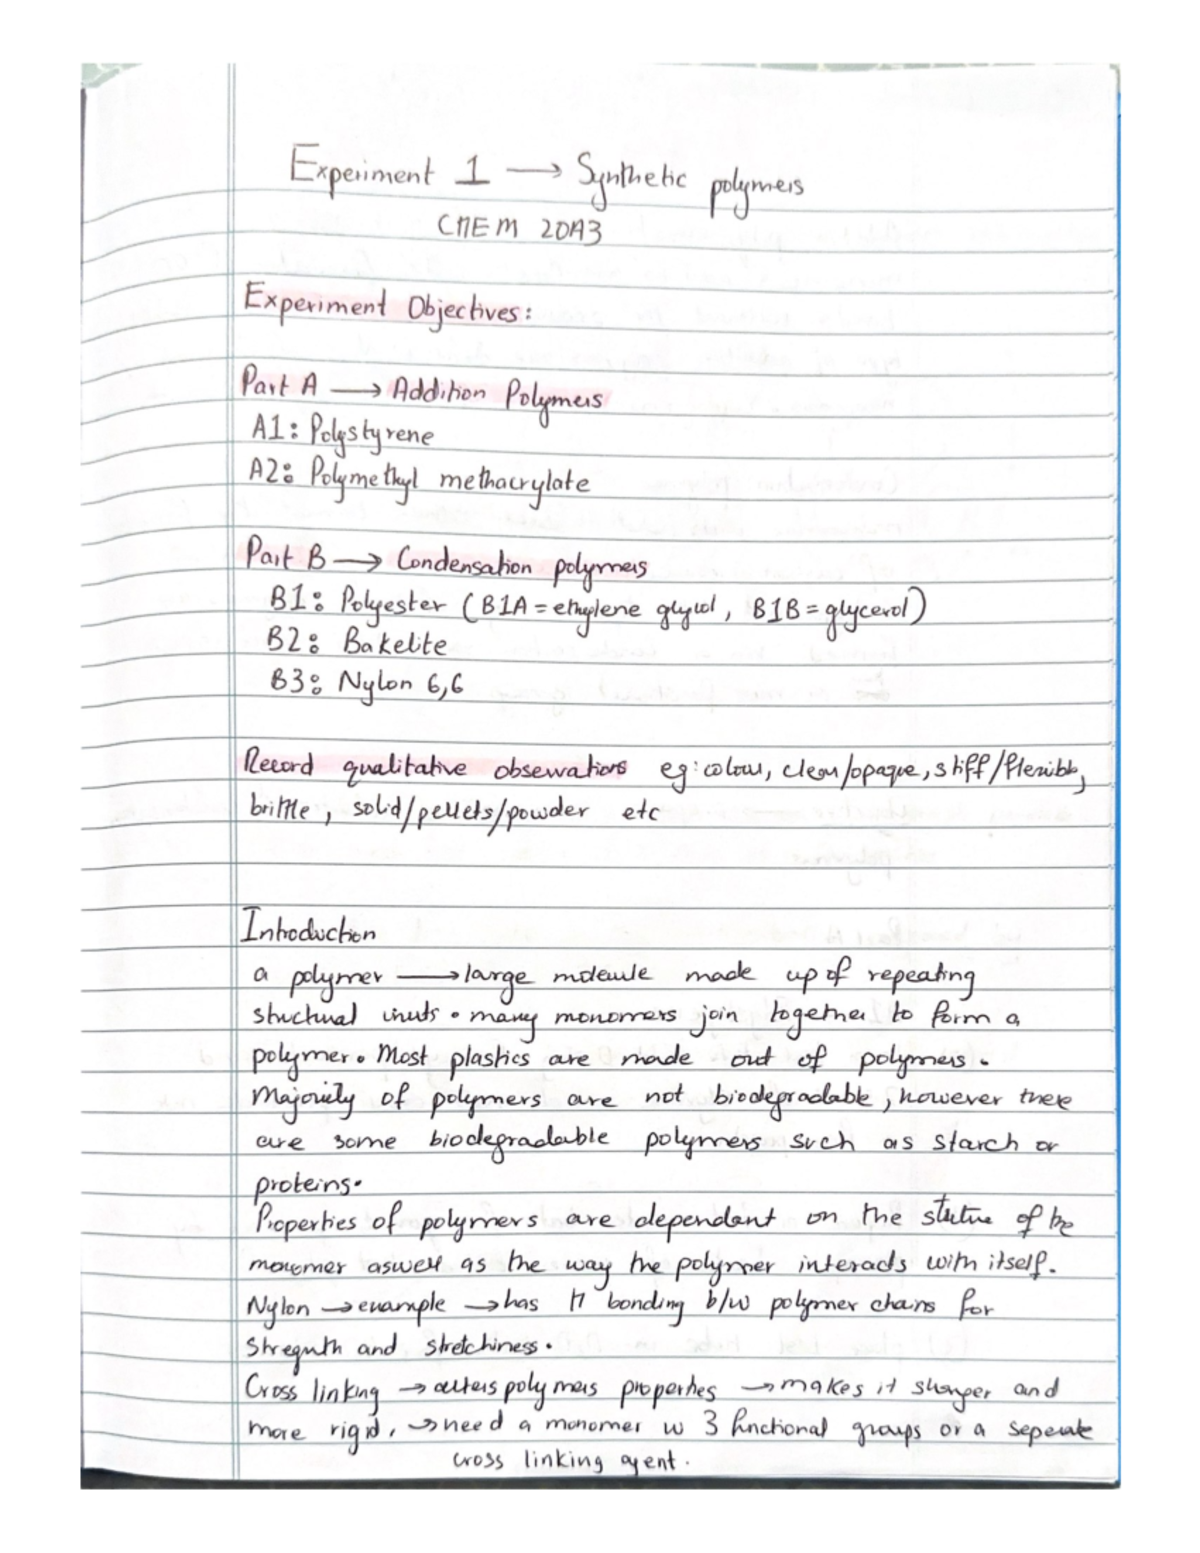 Experiment 1 → Synthetic polymers
CHEM 20A3
Experiment Objectives:
Part A → Addition Polymers
A1: Polystyrene
A2: Polymethyl methacrylate
Part B → Condensation polymers
B1: Polyester (B1A = ethylene glycol, B1B = glycerol)
B2: Bakelite
B3: Nylon 6,6
Record qualitative observations eg: colour, clear/opaque, stiff/flexible,
brittle, solid/pellets/powder etc
Introduction
a polymer → large molecule made up of repeating
structural units. many monomers join together to form a
polymer. Most plastics are made out of polymers.
Majority of polymers are not biodegradable, however there
are some biodegradable polymers such as starch or
proteins.
Properties of polymers are dependent on the of the
monomer aswell as the way the polymer interacts with itself.
Nylon → example → has H bonding b/w polymer chains for
Strength and stretchiness.
Cross linking → alters polymers properties → makes it stronger and
more rigid, → need a monomer w 3 functional groups or a seperate
cross linking agent.